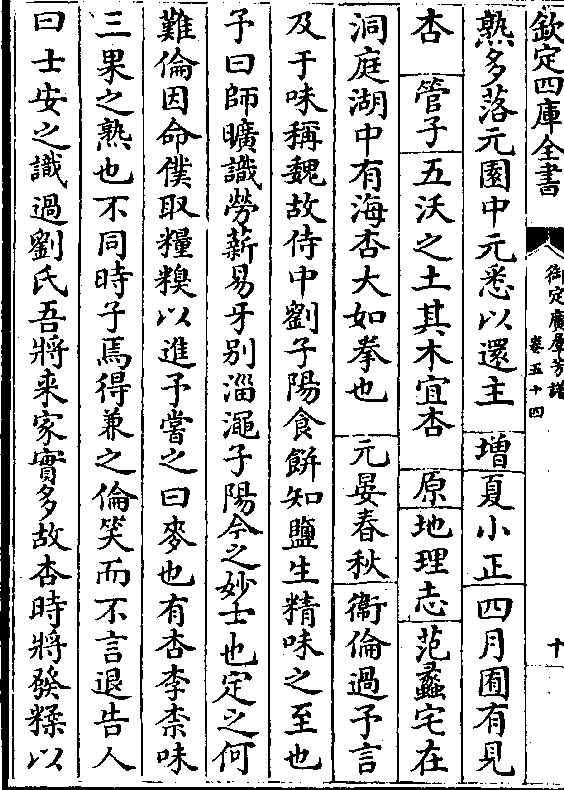 欽定四庫全書
御定廣羣芳譜
卷五十四
十
熟多落元園中元悉以還主 增 夏小正 四月囿有見
杏 管子 五沃之土其木宜杏 原 地理志 范蠡宅在
洞庭湖中有海杏大如拳也 元晏春秋 衞倫過予言
及于味稱魏故侍中劉子陽食餅知鹽生精味之至也
予曰師曠識勞薪易牙别淄澠子陽今之妙士也定之何
難倫因命僕取糧糗以進予嘗之曰麥也有杏李柰味
三果之熟也不同時子焉得兼之倫笑而不言退告人
曰士安之識過劉氏吾將來家實多故杏時將發糅以